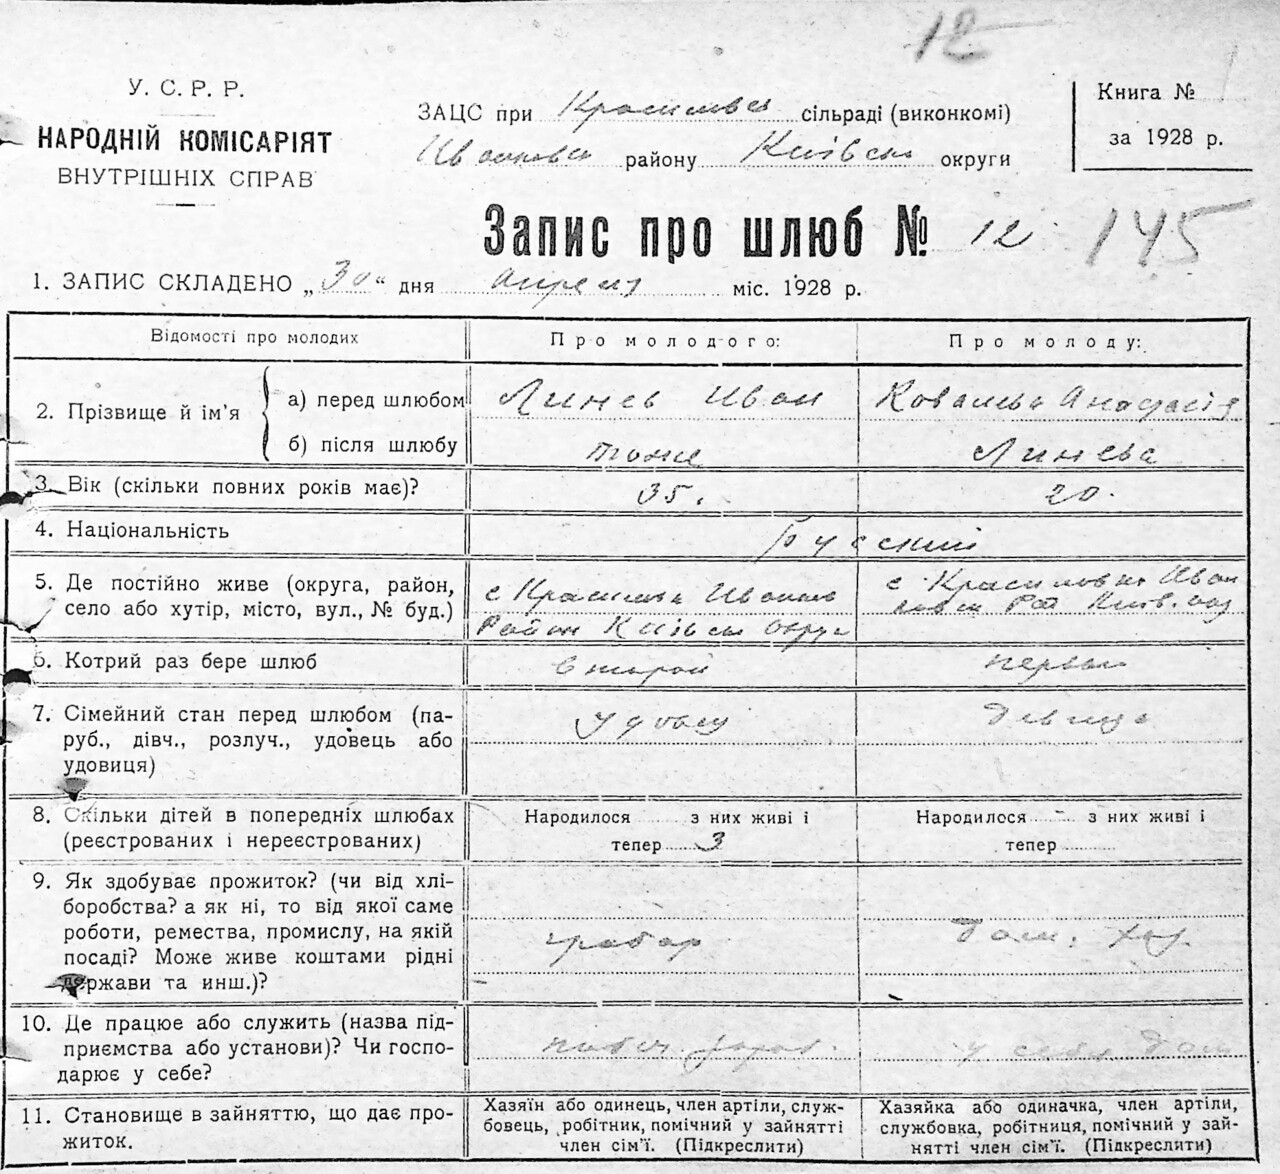 12
У. С. Р. Р.
НАРОДНІЙ КОМІСАРІЯТ
ВНУТРІШНІХ СПРАВ
ЗАЦС при сільраді (виконкомі)
району Київськ округи
Книга №
за 1928 р.
Запис про шлюб № 12 145
1. ЗАПИС СКЛАДЕНО „30“ дня апреля міс. 1928 р.
Відомості про молодих
Про молодого:
Про молоду:
2. Прізвище й ім'я
а) перед шлюбом
Линев Иван
Ковалева Анастасія
б) після шлюбу
тоже
Линева
3. Вік (скільки повних років має)?
35.
20.
4. Національність
Русский
5. Де постійно живе (округа, район,
село або хутір, місто, вул., № буд.)
с
Район Київськ округ
с Красиловка Иван
6. Котрий раз бере шлюб
второй
первый
7. Сімейний стан перед шлюбом (па-
руб., дівч., розлуч., удовець або
удовиця)
девица
8. Скільки дітей в попередніх шлюбах
(реєстрованих і нереєстрованих)
Народилося з них живі і
тепер 3
Народилося - з них живі і
тепер
9. Як здобуває прожиток? (чи від хлі-
боробства? а як ні, то від якої саме
роботи, ремества, промислу, на якій
посаді? Може живе коштами рідні
держави та инш.)?
грабар
дом. хоз.
10. Де працює або служить (назва під-
приємства або установи)? Чи госпо-
дарює у себе?
у себя дом
11. Становище в зайняттю, що дає про-
житок.
Хазяїн або одинець, член артіли, служ-
бовець, робітник, помічний у зайнятті
член сім'ї. (Підкреслити)
Хазяйка або одиначка, член артіли,
службовка, робітниця, помічний у зай-
нятті член сім'ї. (Підкреслити)